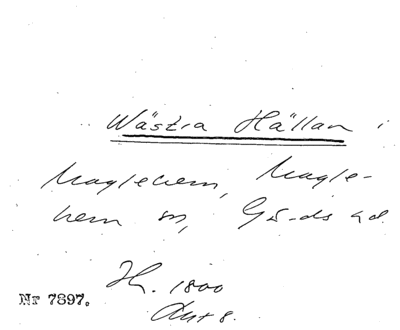 Wästra Hällan i
Maglehem, Magle-
hem sn, Gärds hd.
H. 1800
Akt 8.
Nr 7897.